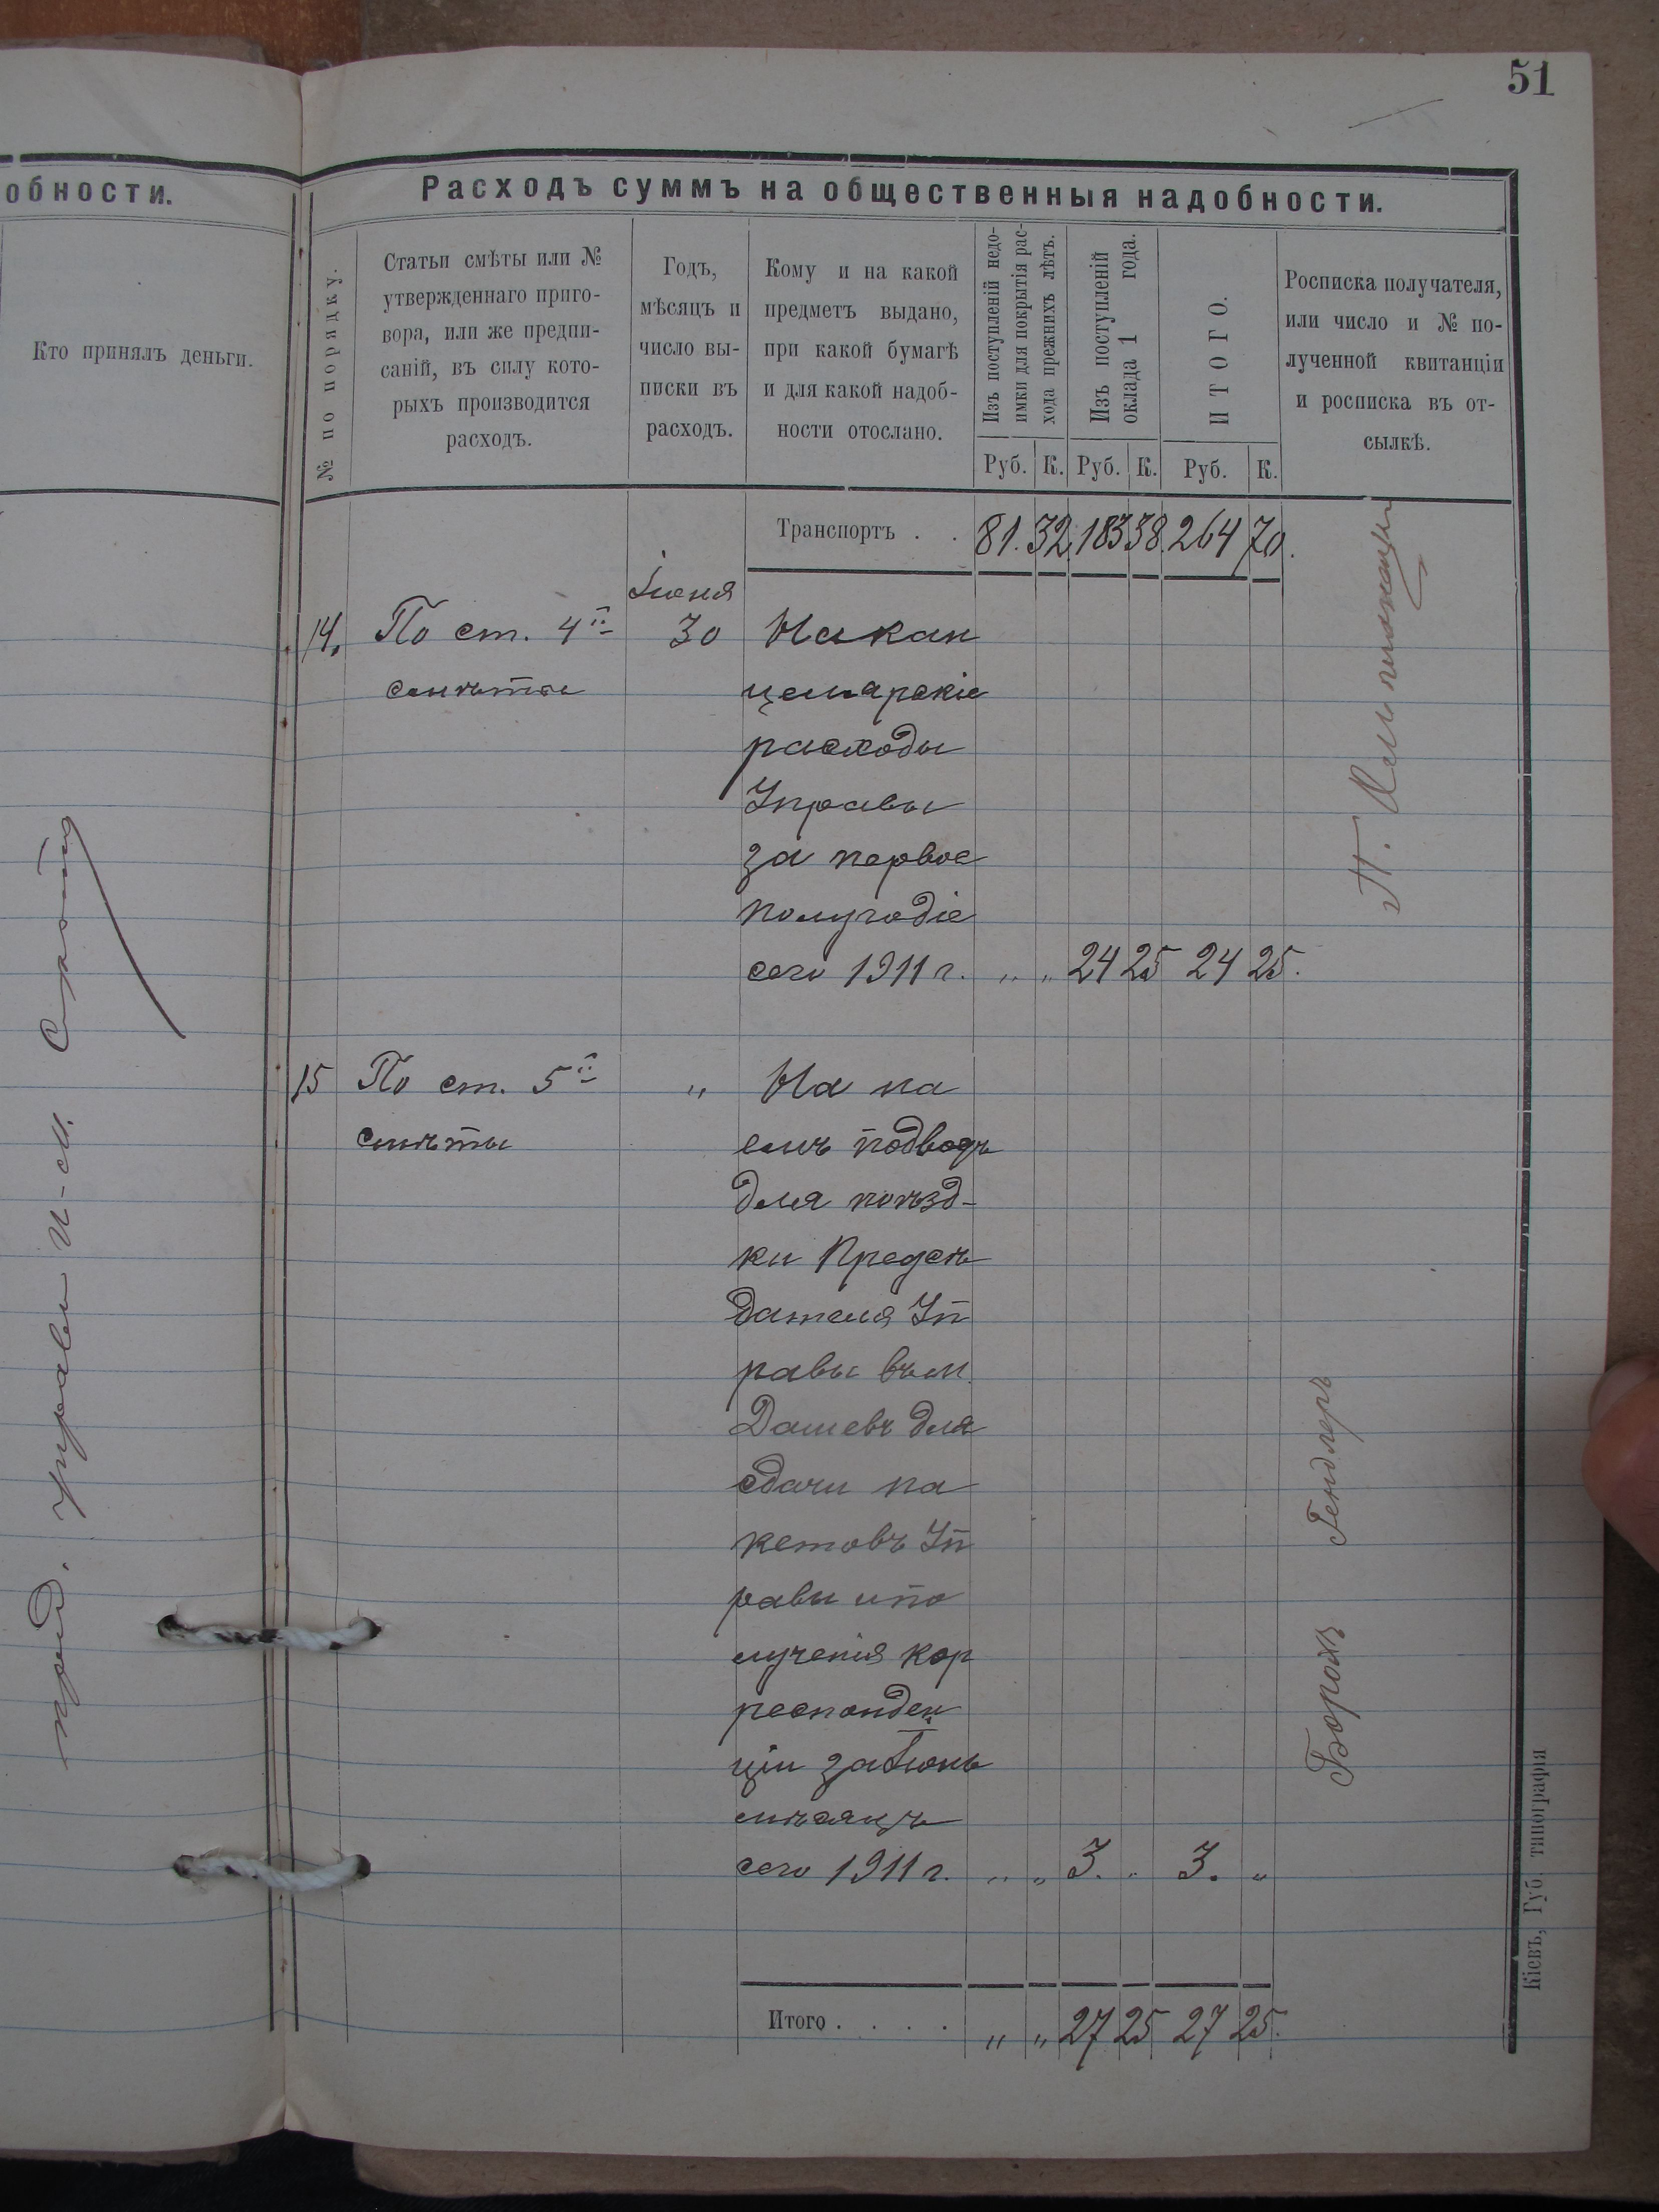 51
обности.
Кто принялъ деньги.
пред. управы И-М.
Расходъ суммъ на общественныя надобности.
№ по порядку.
Статьи смѣты или №
утвержденнаго приго-
вора, или же предпи-
саній, въ силу кото-
рыхъ производится
расходъ.
Годъ,
мѣсяцъ и
число вы-
писки въ
расходъ.
Кому и на какой
предметъ выдано,
при какой бумагѣ
и для какой надоб-
ности отослано.
Изъ поступленій недо-
имки для покрытія рас-
хода прежнихъ лѣтъ.
Изъ поступленій
оклада 1 года.
ИТОГО.
Росписка получателя,
или число и № по-
лученной квитанціи
и росписка въ от-
сылкѣ.
Руб. К. Руб. К. Руб. К.
Транспортъ . . 81. 32. 183 38. 264 70.
Іюня
14. По ст. 4й 30 На кан
смѣты целарскіе
расходы
Управы
за первое
полугодіе
сего 1911 г. „ „ 24 25 24 25.
П.
15 По ст. 5й „ На на
смѣты емъ подводъ
для поѣзд-
ки Предсѣ
дателя Уп
равы въ м.
Дашевъ для
сдачи па
кетовъ Уп
равы и по
лученія кор
респонден
ціи за Іюнь
мѣсяцъ
сего 1911 г. „ „ 3. „ 3. „
Борохъ Гендлеръ
Итого . . . . „ „ 27 25 27 25.
Кіевъ, Губ. типографія